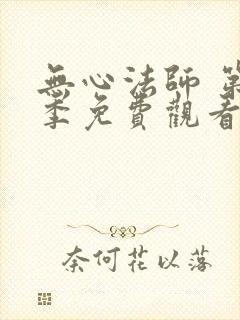 無心法師 第
季免費觀看
奈何花以落